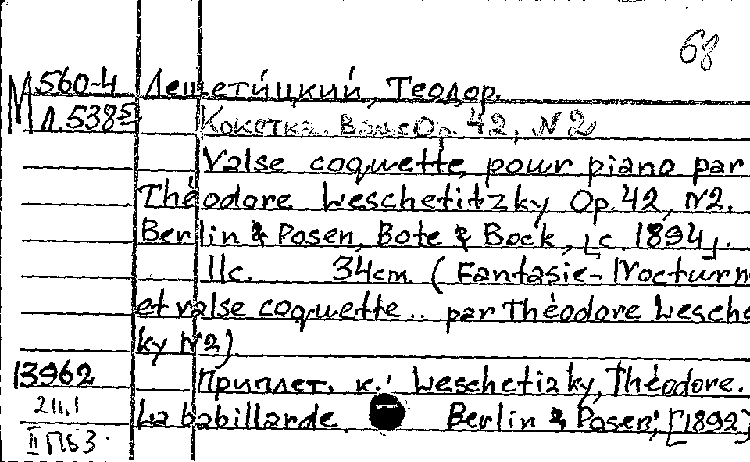 68
М 560-4 Лешети́цкий, Теодор.
Л.538⁵ Кокетка. Вальс Op. 42, N2
Valse coquette pour piano par
Théodore Leschetitzky Op. 42, N2.
Berlin & Posen, Bote & Bock, [c 1894].
11c. 34cm (Fantasie-Nocturn
et valse coquette .. par Théodore Lesche
ky N2)
13962 Приплет. к: Leschetizky, Théodore.
La babillarde Berlin & Posen, [1892]